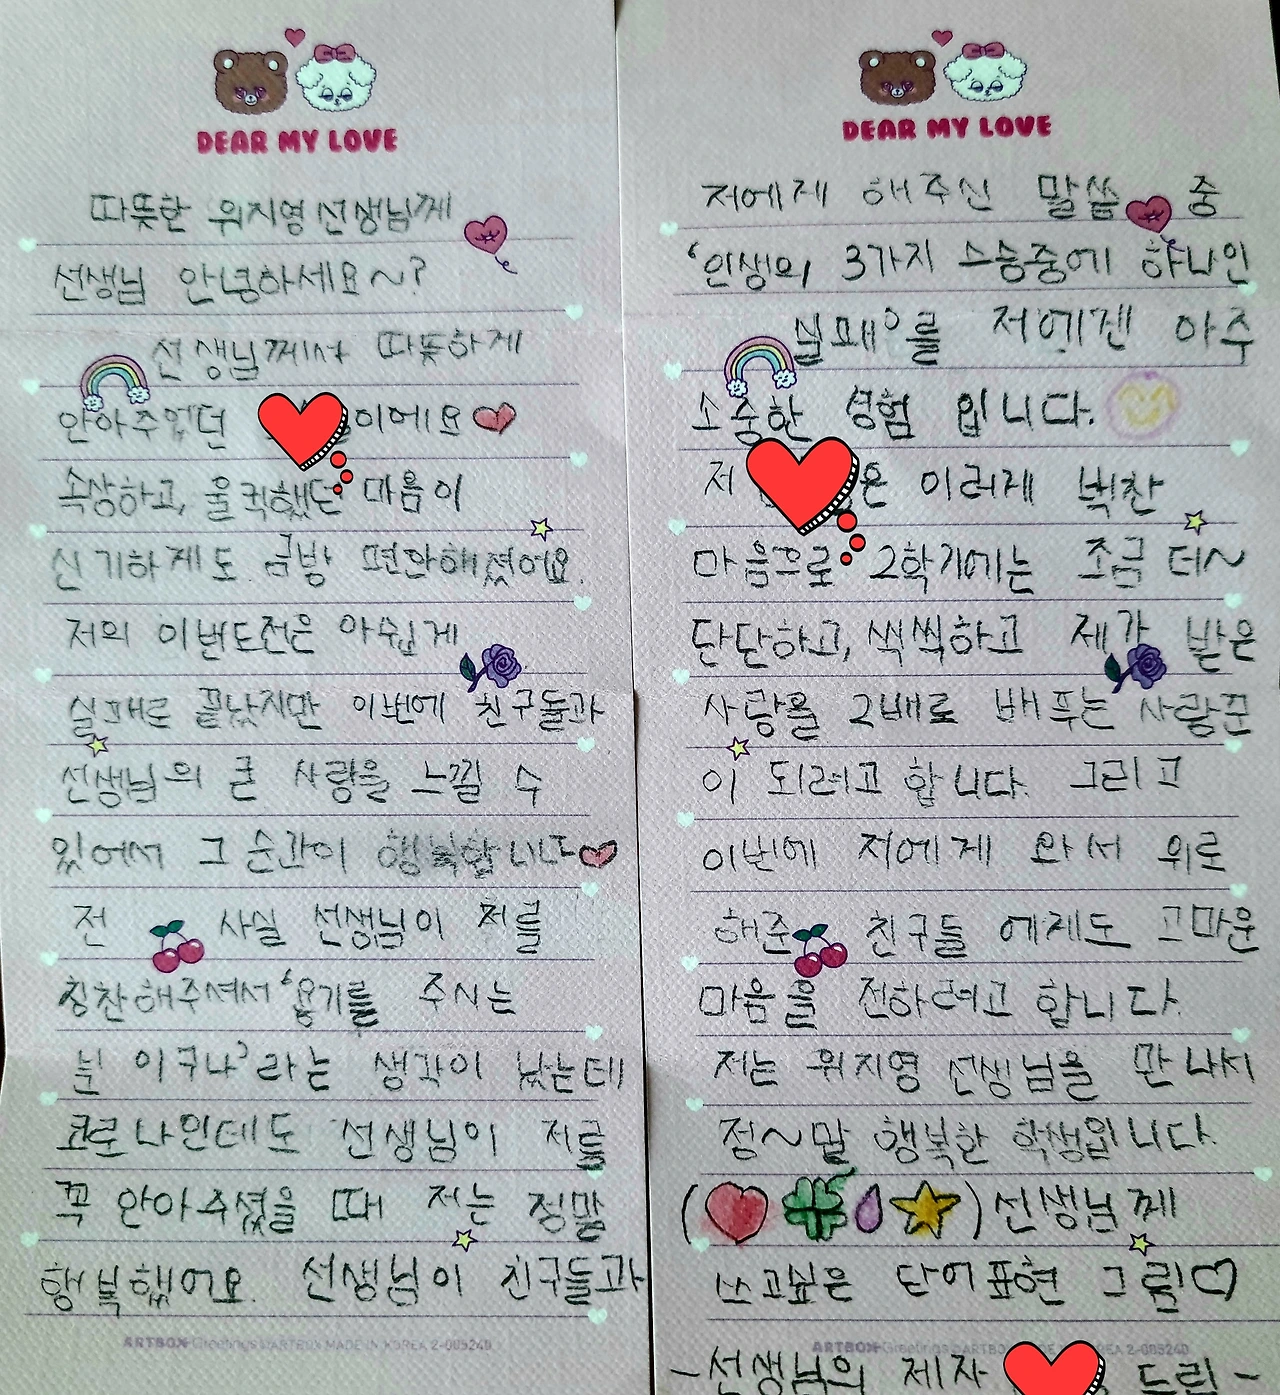 DEAR MY LOVE
따뜻한 위지영선생님께
선생님 안녕하세요~?
선생님께서 따뜻하게
안아주었던 이에요
속상하고, 울컥했던 마음이
신기하게도 금방 편안해졌어요.
저의 이번도전은 아쉽게
실패로 끝났지만 이번에 친구들과
선생님의 큰 사랑을 느낄 수
있어서 그 순간이 행복합니다
전 사실 선생님이 저를
칭찬해주셔서 '용기를 주시는
분 이구나'라는 생각이 났는데
코로나인데도 선생님이 저를
꼭 안아주셨을 때 저는 정말
행복했어요. 선생님이 친구들과
ARTBOX Greetings ©ARTBOX MADE IN KOREA 2-005240
DEAR MY LOVE
저에게 해주신 말씀 중
'인생의 3가지 스승중에 하나인
실패'를 저에겐 아주
소중한 경험 입니다.
저 은 이러게 벅찬
마음으로 2학기에는 조금 더~
단단하고, 씩씩하고 제가 받은
사랑을 2배로 베푸는 사랑꾼
이 되려고 합니다. 그리고
이번에 저에게 와서 위로
해준 친구들 에게도 고마운
마음을 전하려고 합니다.
저는 위지영 선생님을 만나서
정~말 행복한 학생입니다.
( ) 선생님께
쓰고싶은 단어표현 그림
ARTBOX Greetings ©ARTBOX 2-005240
-선생님의 제자 드림-